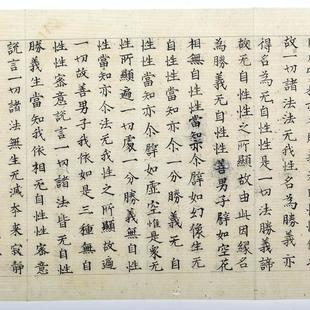 故一切諸法法无我性名為勝義亦
得名為无自性性是一切法勝義諦
故无自性性之所顯故由此因緣名
為勝義无自性性善男子譬如空花
相無自性性當知亦尒譬如幻像生无
自性性當知亦尒一分勝義无自
性性當知亦尒譬如虛空惟是衆无
性所顯遍一切處一分勝義無自性
性當知亦尒法无我性之所顯故遍
一切故善男子我依如是三種無自
性性密意說言一切諸法皆无自性
勝義生當知我依相无自性性密意
說言一切諸法無生无滅夲來寂靜